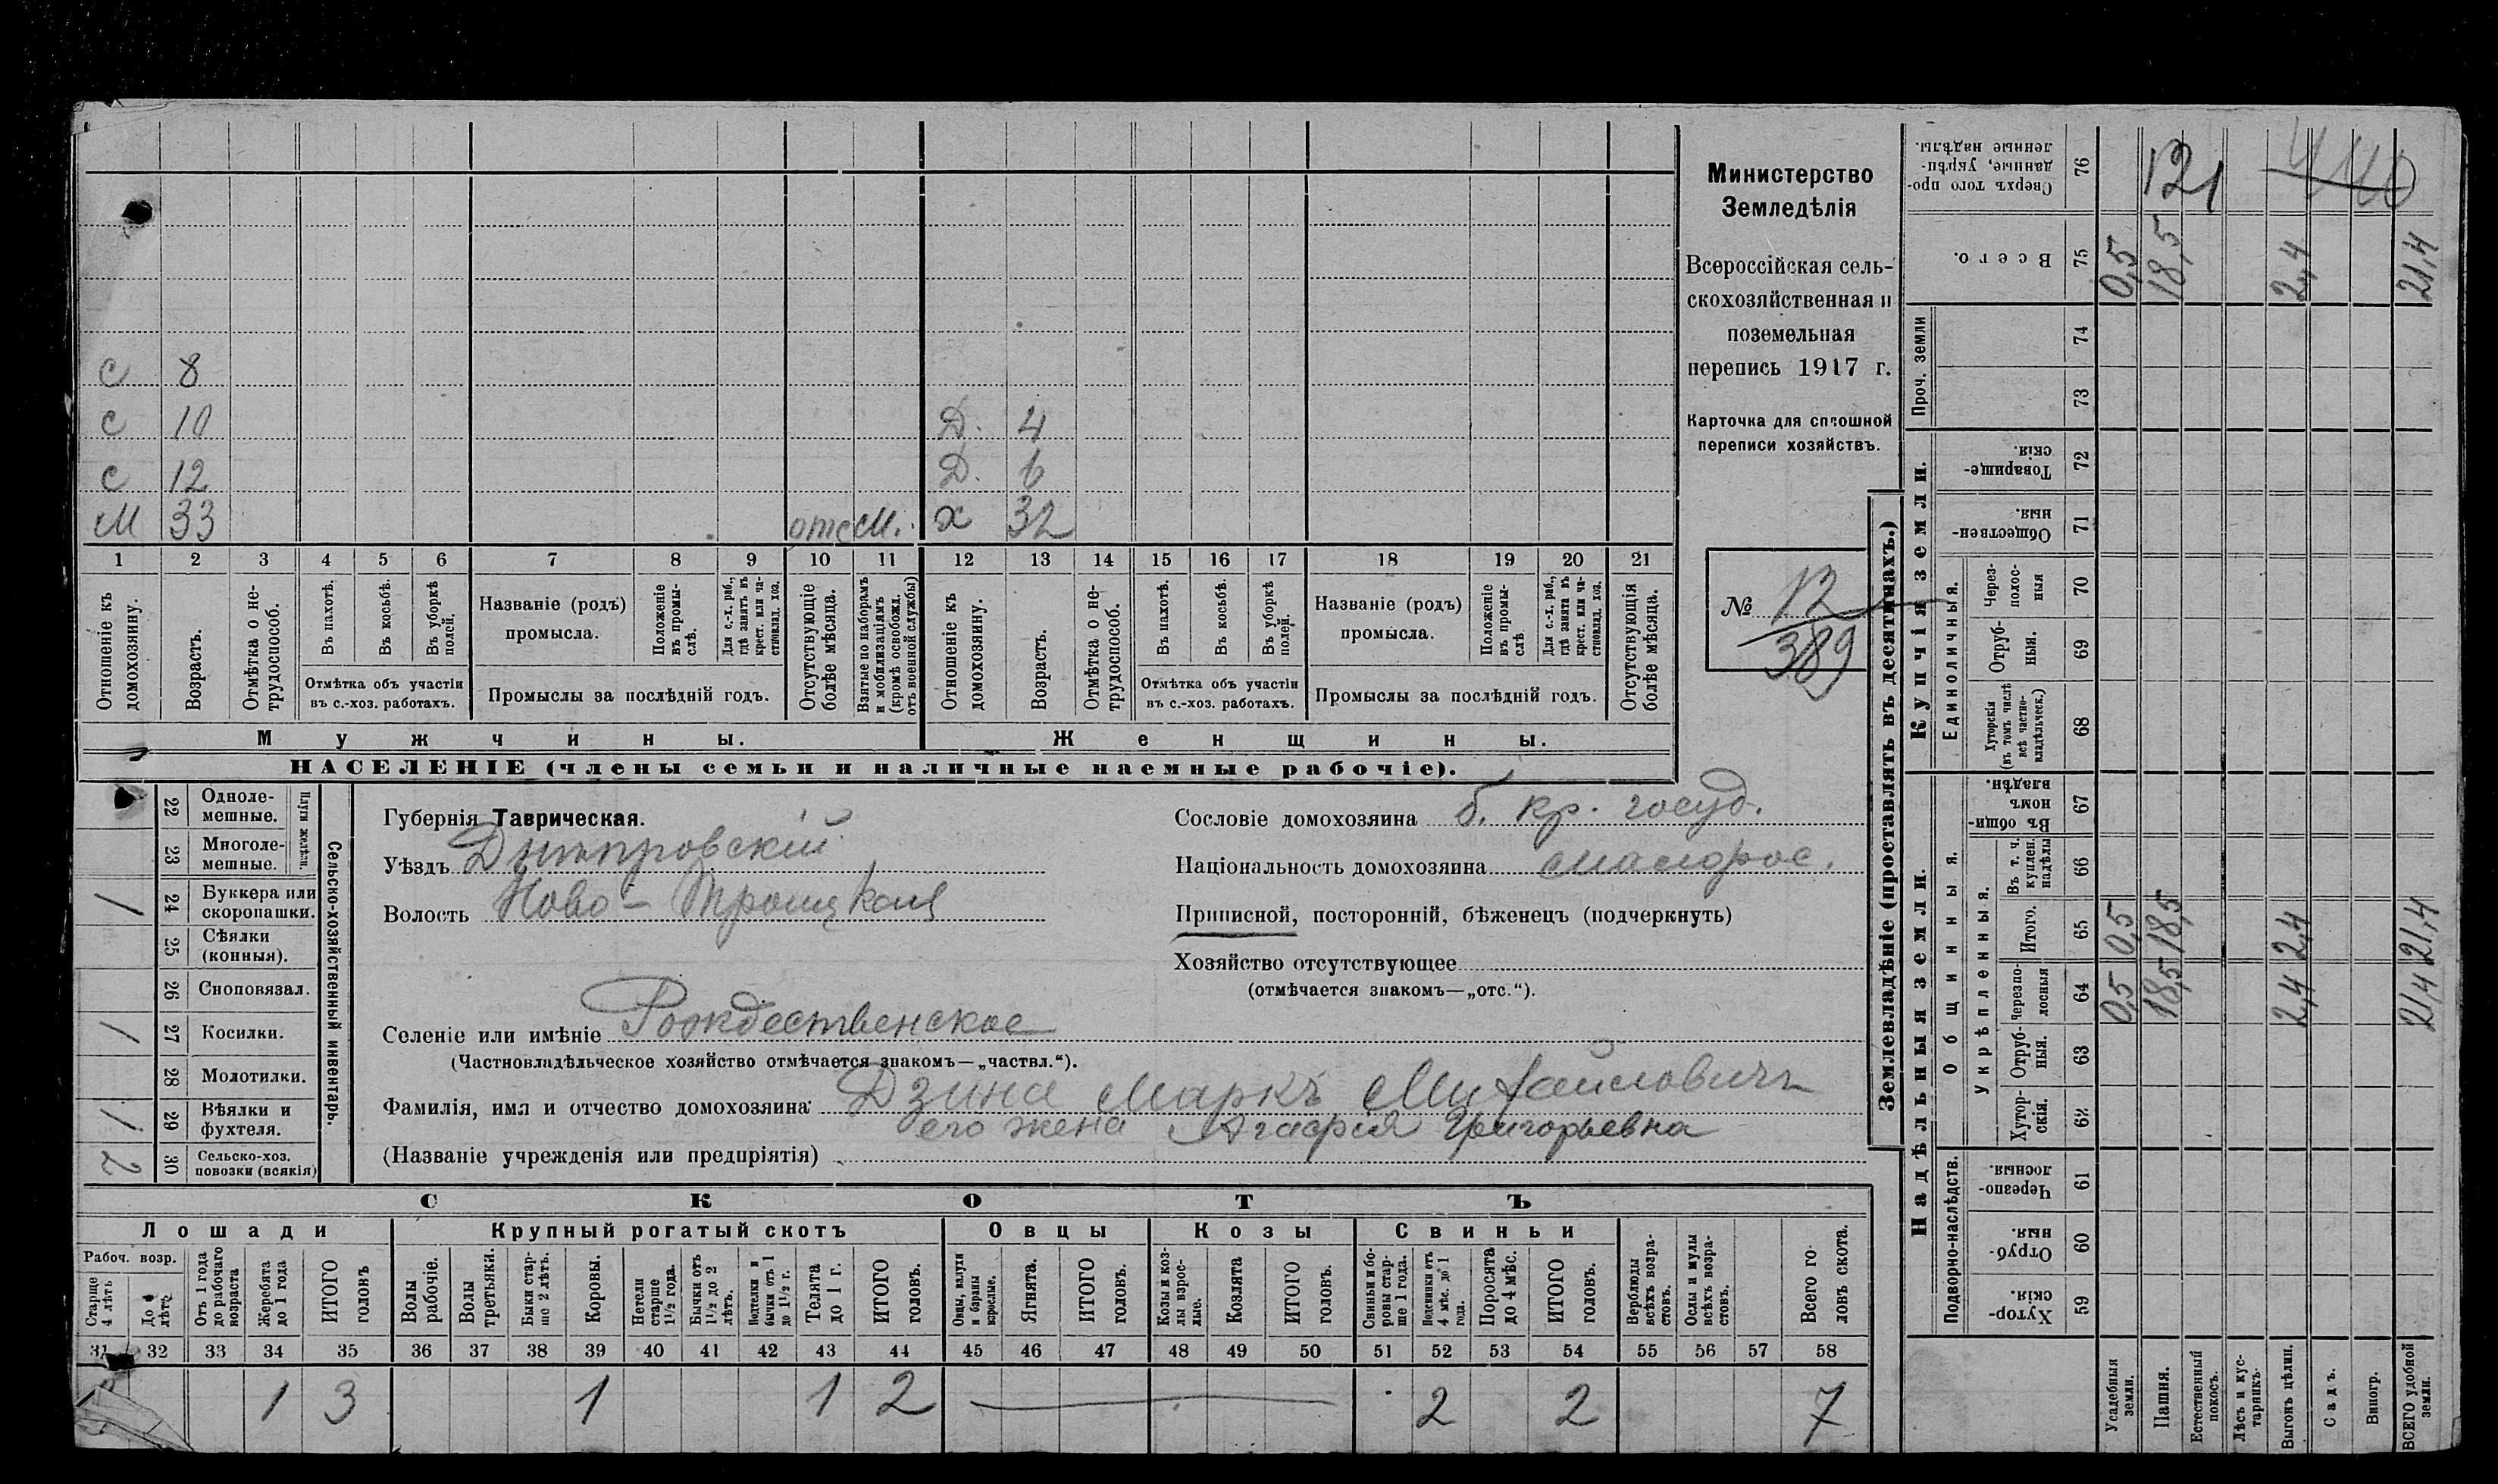 С 8
С 10 Д. 4
С 12 Д. 6
М 33 отс М. х 32
1 2 3 4 5 6 7 8 9 10 11 12 13 14 15 16 17 18 19 20 21
Отношеніе къ домохозяину.
Возрастъ.
Отмѣтка о не-
трудоспособ.
Въ пахотѣ.
Въ косьбѣ.
Въ уборкѣ
полей.
Отмѣтка объ участіи
въ с.-хоз. работахъ.
Названіе (родъ)
промысла.
Положеніе
въ промы-
слѣ.
Для с.-х. раб.,
гдѣ занятъ въ
крест. или ча-
стновлад. хоз.
Промыслы за послѣдній годъ.
Отсутствующіе
болѣе мѣсяца.
Взятые по наборамъ
и мобилизаціямъ
(кромѣ освобожд.
отъ военной службы)
Отношеніе къ
домохозяину.
Возрастъ.
Отмѣтка о не-
трудоспособ.
Въ пахотѣ.
Въ косьбѣ.
Въ уборкѣ
полей.
Отмѣтка объ участіи
въ с.-хоз. работахъ.
Названіе (родъ)
промысла.
Положеніе
въ промы-
слѣ
Для с.-х. раб.,
гдѣ занята въ
крест. или ча-
стновлад. хоз.
Промыслы за послѣдній годъ.
Отсутствующія
болѣе мѣсяца.
Мужчины. Женщины.
НАСЕЛЕНІЕ (члены семьи и наличные наемные рабочіе).
Министерство
Земледѣлія
Всероссійская сель-
скохозяйственная и
поземельная
перепись 1917 г.
Карточка для сплошной
переписи хозяйствъ.
№ 12
389
Сельско-хозяйственный инвентарь.
Плуги желѣзн.
22 Одноле-
мешные.
23 Многоле-
мешные.
1 24 Буккера или
скоропашки.
25 Сѣялки
(конныя).
26 Сноповязал.
1 27 Косилки.
28 Молотилки.
1 29 Вѣялки и
фухтеля.
2 30 Сельско-хоз.
повозки (всякія)
Губернія Таврическая.
Уѣздъ Днѣпровскій
Волость Ново-Троицкая
Селеніе или имѣніе Рождественское
(Частновладѣльческое хозяйство отмѣчается знакомъ—„частвл.“).
Фамилія, имя и отчество домохозяина: Дзина Маркъ Михайловичъ
его жена Агафія Григорьевна
(Названіе учрежденія или предпріятія)
Сословіе домохозяина б. кр. госуд.
Національность домохозяина малорос.
Приписной, посторонній, бѣженецъ (подчеркнуть)
Хозяйство отсутствующее
(отмѣчается знакомъ—„отс.“).
СКОТЪ
Лошади Крупный рогатый скотъ Овцы Козы Свиньи
Рабоч. возр.
Старше
4 лѣтъ
До 4
лѣтъ
Отъ 1 года
до рабочаго
возраста
Жеребята
до 1 года
ИТОГО
головъ
Волы
рабочіе.
Волы
третьяки.
Быки стар-
ше 2 лѣтъ.
Коровы.
Нетели
старше
1½ года.
Бычки отъ
1½ до 2
лѣтъ.
Подтелки и
бычки отъ 1
до 1½ г.
Телята
до 1 г.
ИТОГО
головъ.
Овцы, валухи
и бараны
взрослые.
Ягнята.
ИТОГО
головъ.
Козы и коз-
лы взрос-
лые.
Козлята
ИТОГО
головъ.
Свиньи и бо-
ровы стар-
ше 1 года.
Подсвинки отъ
4 мѣс. до 1
года.
Поросята
до 4 мѣс.
ИТОГО
головъ.
Верблюды
всѣхъ возра-
стовъ.
Ослы и мулы
всѣхъ возра-
стовъ.
Всего го-
ловъ скота.
31 32 33 34 35 36 37 38 39 40 41 42 43 44 45 46 47 48 49 50 51 52 53 54 55 56 57 58
1 3 1 1 2 2 2 7
Землевладѣніе (проставлять въ десятинахъ.)
Купчія земли.
Надѣльныя земли.
Сверхъ того про-
данные, укрѣп-
ленные надѣлы.
76 121
Всего.
75 0,5 18,5 2,4 21,4
Проч. земли
74
73
Товарище-
скія.
72
Обществен-
ныя.
71
Единоличныя.
Через-
полос-
ныя
70
Отруб-
ныя.
69
Хуторскія
(въ томъ числѣ
всѣ частно-
владѣльческ.)
68
Общинныя.
Въ общи-
номъ
владѣн.
67
Укрѣпленныя.
Въ т. ч.
куплен.
надѣлы
66
Итого.
65 0,5 18,5 2,4 21,4
Черезпо-
лосныя
64 0,5 18,5 2,4 21,4
Отруб-
ныя.
63
Хутор-
скія.
62
Подворно-наслѣдств.
Черезпо-
лосныя.
61
Отруб-
ныя.
60
Хутор-
скія.
59
Усадебныя
земли.
Пашня.
Естественный
покосъ.
Лѣсъ и кус-
тарникъ.
Выгонъ цѣлин.
Садъ.
Виногр.
ВСЕГО удобной
земли.